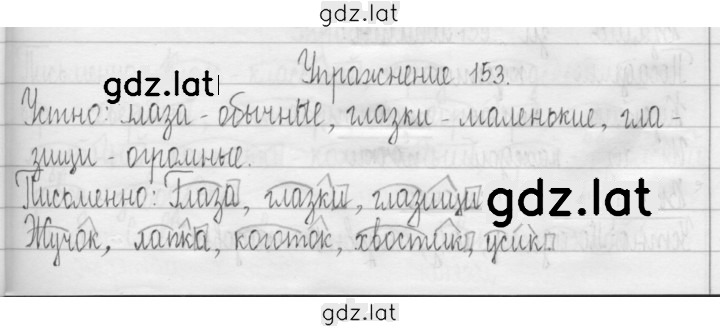 gdz.lat
Упражнение 153.
gdz.lat
Устно: глаза - обычные, глазки - маленькие, гла -
зищи - огромные.
Письменно: Глаза, глазки, глазищи
gdz.lat
Жучок, лапка, коготок, хвостик, усик.
gdz.lat